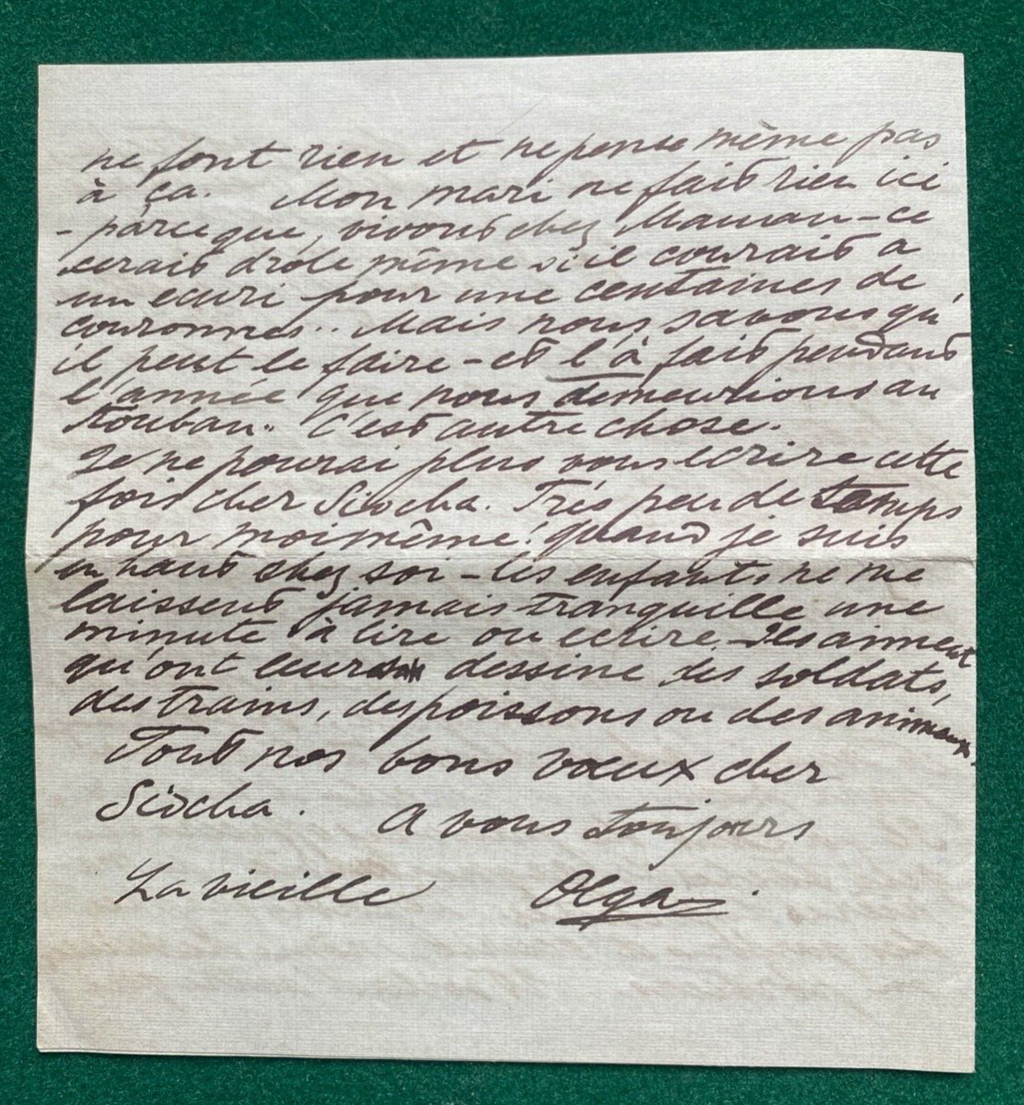 ne font rien et ne pense même pas
à ça. Mon mari ne fait rien ici
- parce que, vivont chez Maman - ce
serait drôle même si il courait a
un ecuri pour une centaines de
couronnes.. Mais nous savons qu'
il peut le faire - et l'à fait pendant
l'année que nous demeurions au
Kouban.. C'est autre chose.
Je ne pourai plus vous ecrire cette
fois cher Siocha. Très peu de temps
pour moi même! quand je suis
en haut chez soi - les enfants ne me
laissent jamais tranquille une
minute à lire ou ecrire - Ils aiment
qu'ont leurs dessine des soldats,
des trains, des poissons ou des animaux.
Tout nos bons vœux cher
Siocha. A vous toujours
La vieille Olga.